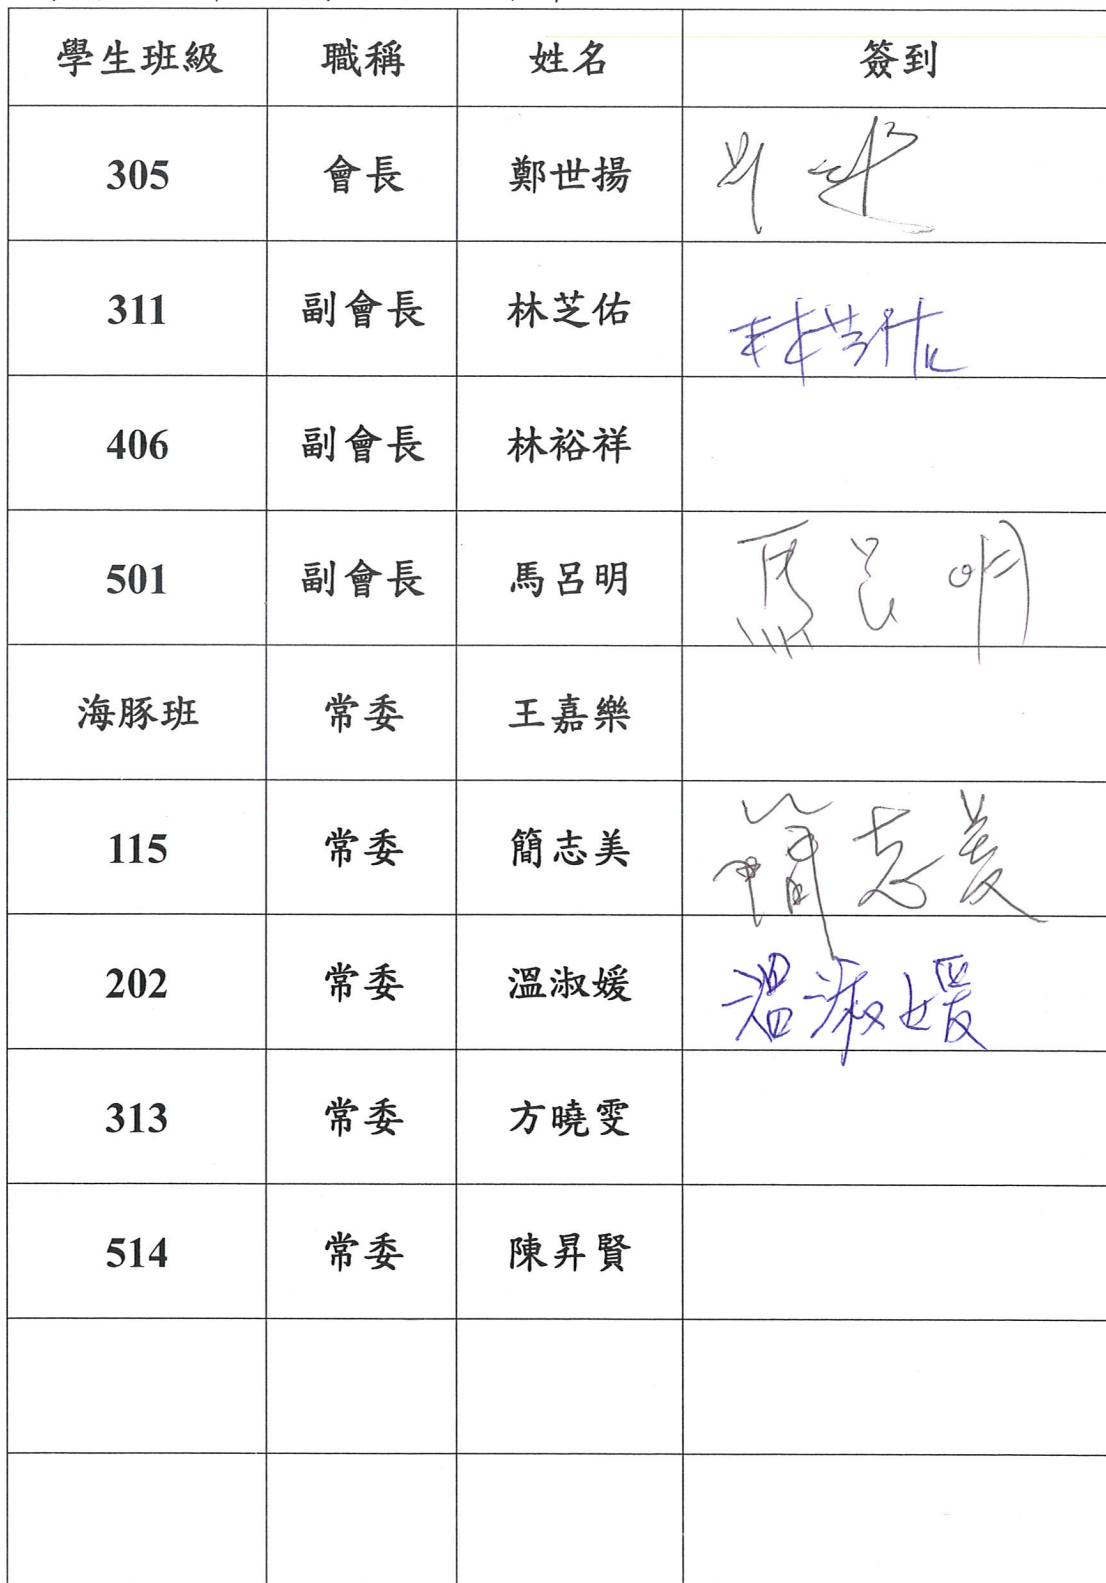 學生班級 職稱 姓名 簽到
305 會長 鄭世揚
311 副會長 林芝佑 林芝佑
406 副會長 林裕祥
501 副會長 馬呂明 馬呂明
海豚班 常委 王嘉樂
115 常委 簡志美 簡志美
202 常委 溫淑媛 溫淑媛
313 常委 方曉雯
514 常委 陳昇賢